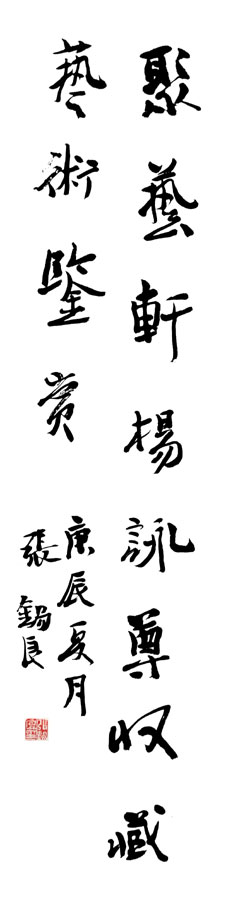 聚藝軒楊詠尊收藏
藝術鑒賞
庚辰夏月
張錫良